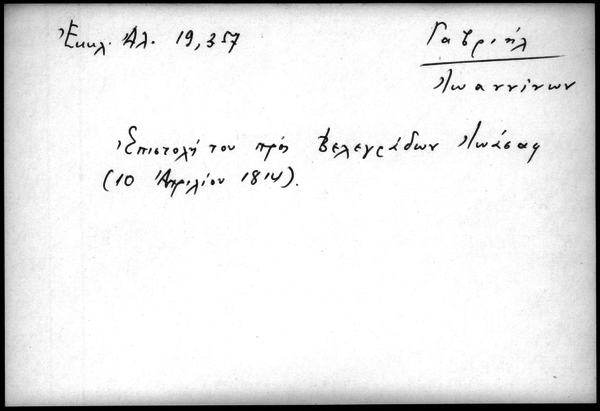 Ἐκκλ. Ἀλ. 19, 357
Γαβριήλ
Ἰωαννίνων
Ἐπιστολή του πρός Βελεγράδων Ἰωάσαφ
(10 Ἀπριλίου 1814).